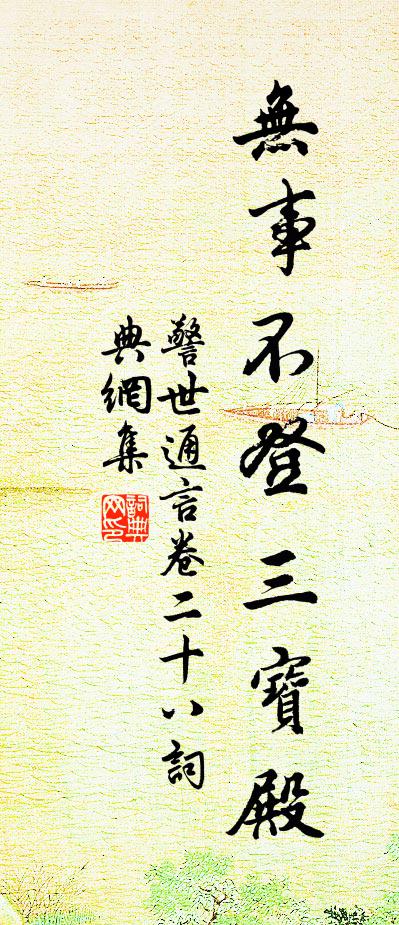 無事不登三寶殿
警世通言卷二十八詞
典網集
詞典
网印